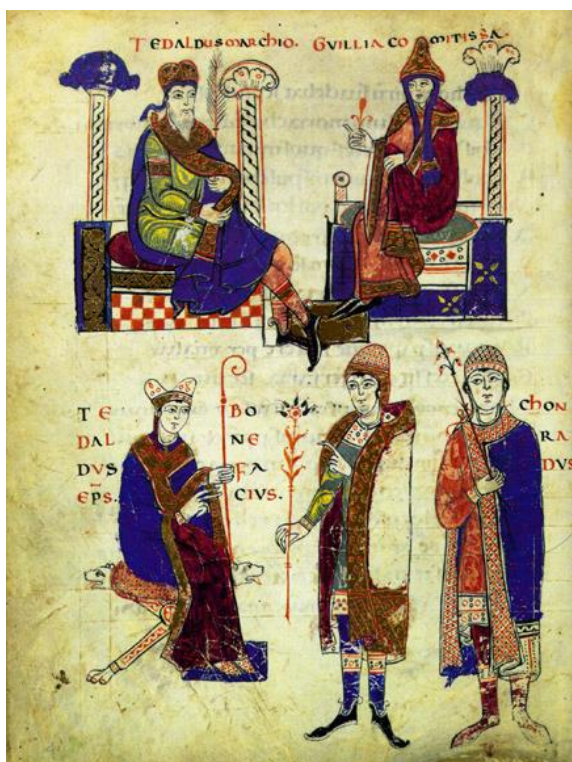 TEDALDUSMARCHIO. GVILLIA CO MITISSA.
TE
DAL
DVS
EP̄S.
BO
NE
FA
CIVS.
CHON
RA
DVS